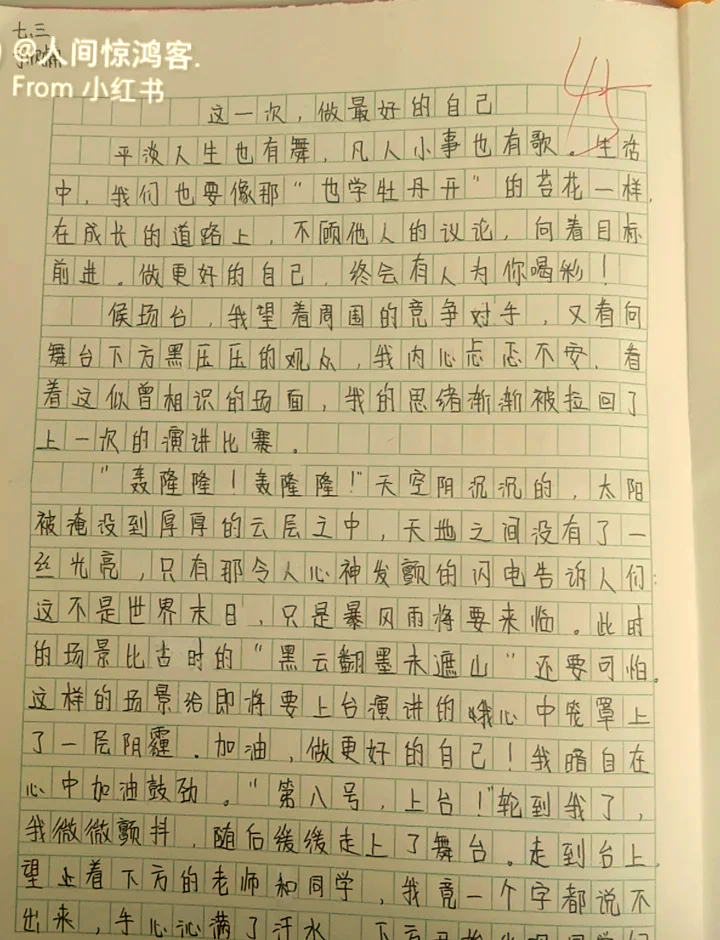 七.三
@人间惊鸿客.
From 小红书
45
这一次，做最好的自己
平淡人生也有舞，凡人小事也有歌。生活
中，我们也要像那“也学牡丹开”的苔花一样，
在成长的道路上，不顾他人的议论，向着目标
前进。做更好的自己，终会有人为你喝彩！
候场台，我望着周围的竞争对手，又看向
舞台下方黑压压的观众，我内心忐忑不安，看
着这似曾相识的场面，我的思绪渐渐被拉回了
上一次的演讲比赛。
“轰隆隆！轰隆隆！”天空阴沉沉的，太阳
被淹没到厚厚的云层之中，天地之间没有了一
丝光亮，只有那令人心神发颤的闪电告诉人们：
这不是世界末日，只是暴风雨将要来临。此时
的场景比古时的“黑云翻墨未遮山”还要可怕。
这样的场景给即将要上台演讲的我心中笼罩上
了一层阴霾。加油，做更好的自己！我暗自在
心中加油鼓劲。“第八号，上台！”轮到我了，
我微微颤抖，随后缓缓走上了舞台。走到台上，
望着下方的老师和同学，我竟一个字都说不
出来，手心沁满了汗水